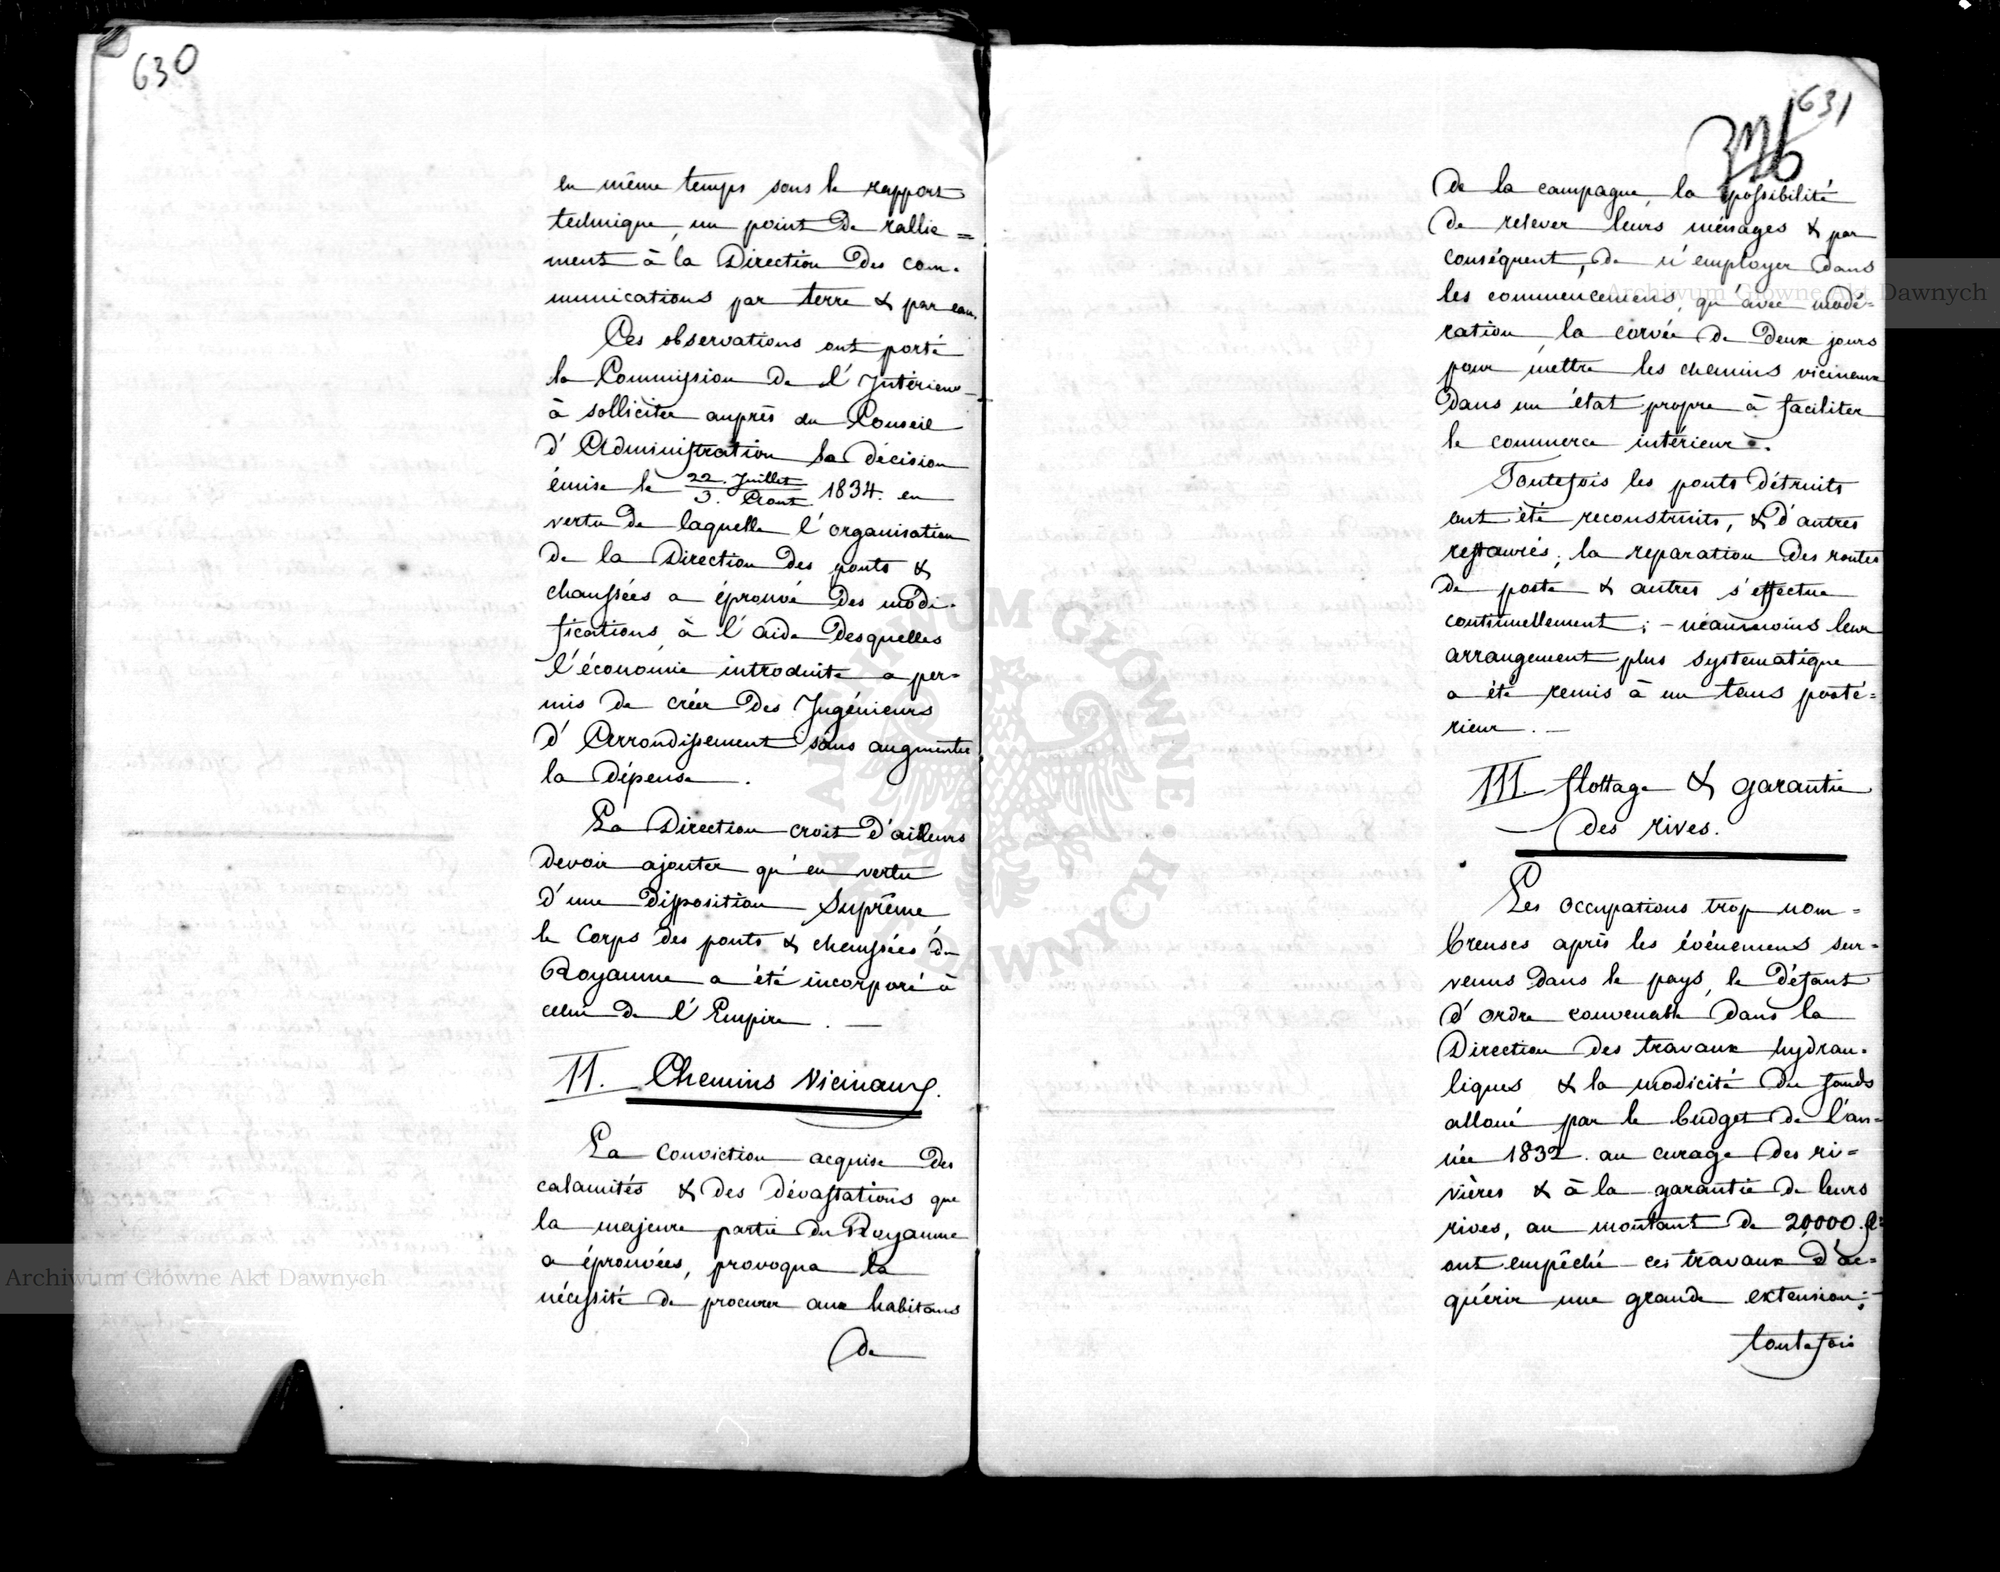 630
en même temps sous le rapport
technique, un point de rallie=
ment à la Direction des com-
munications par terre & par eau.
Ces observations ont porté
la Commission de l'Intérieur
à solliciter auprès du Conseil
d'Administration la décision
émise le 22. Juillet / 3. Aout 1834. en
vertu de laquelle l'organisation
de la Direction des ponts &
chaussées a éprouvé des modi-
fications, à l'aide desquelles
l'économie introduite a per-
mis de créer des Ingénieurs
d'Arrondissement sans augmenter
la dépense.
La Direction croit d'ailleurs
devoir ajouter qu'en vertu
d'une disposition Suprême
le Corps des ponts & chaussées du
Royaume a été incorporé à
celui de l'Empire. —
II. Chemins vicinaux.
La conviction acquise des
calamités & des dévastations que
la majeure partie du Royaume
a éprouvées, provoqua la
nécessité de procurer aux habitans
de
631
326
de la campagne, la possibilité
de relever leurs ménages & par
conséquent, de n'employer dans
les commencemens, qu'avec modé-
ration, la corvée de deux jours
pour mettre les chemins vicineaux
dans un état propre à faciliter
le commerce intérieur.
Toutefois les ponts détruits
ont été reconstruits, & d'autres
restaurés; la reparation des routes
de poste & autres s'effectue
continuellement; – néanmoins leur
arrangement plus systematique
a été remis à un tems posté=
rieur. —
III. flottage & garantie
des rives.
Les occupations trop nom=
breuses après les événemens sur=
venus dans le pays, le défaut
d'ordre convenable dans la
Direction des travaux hydrau-
liques & la modicité du fonds
alloué par le budget de l'an-
née 1832. au curage des ri=
vières & à la garantie de leurs
rives, au montant de 20000. fl=
ont empêché ces travaux d'ac=
quérir une grande extension; –
toutefois
Archiwum Główne Akt Dawnych
Archiwum Główne Akt Dawnych
ARCHIWUM GŁÓWNE AKT DAWNYCH